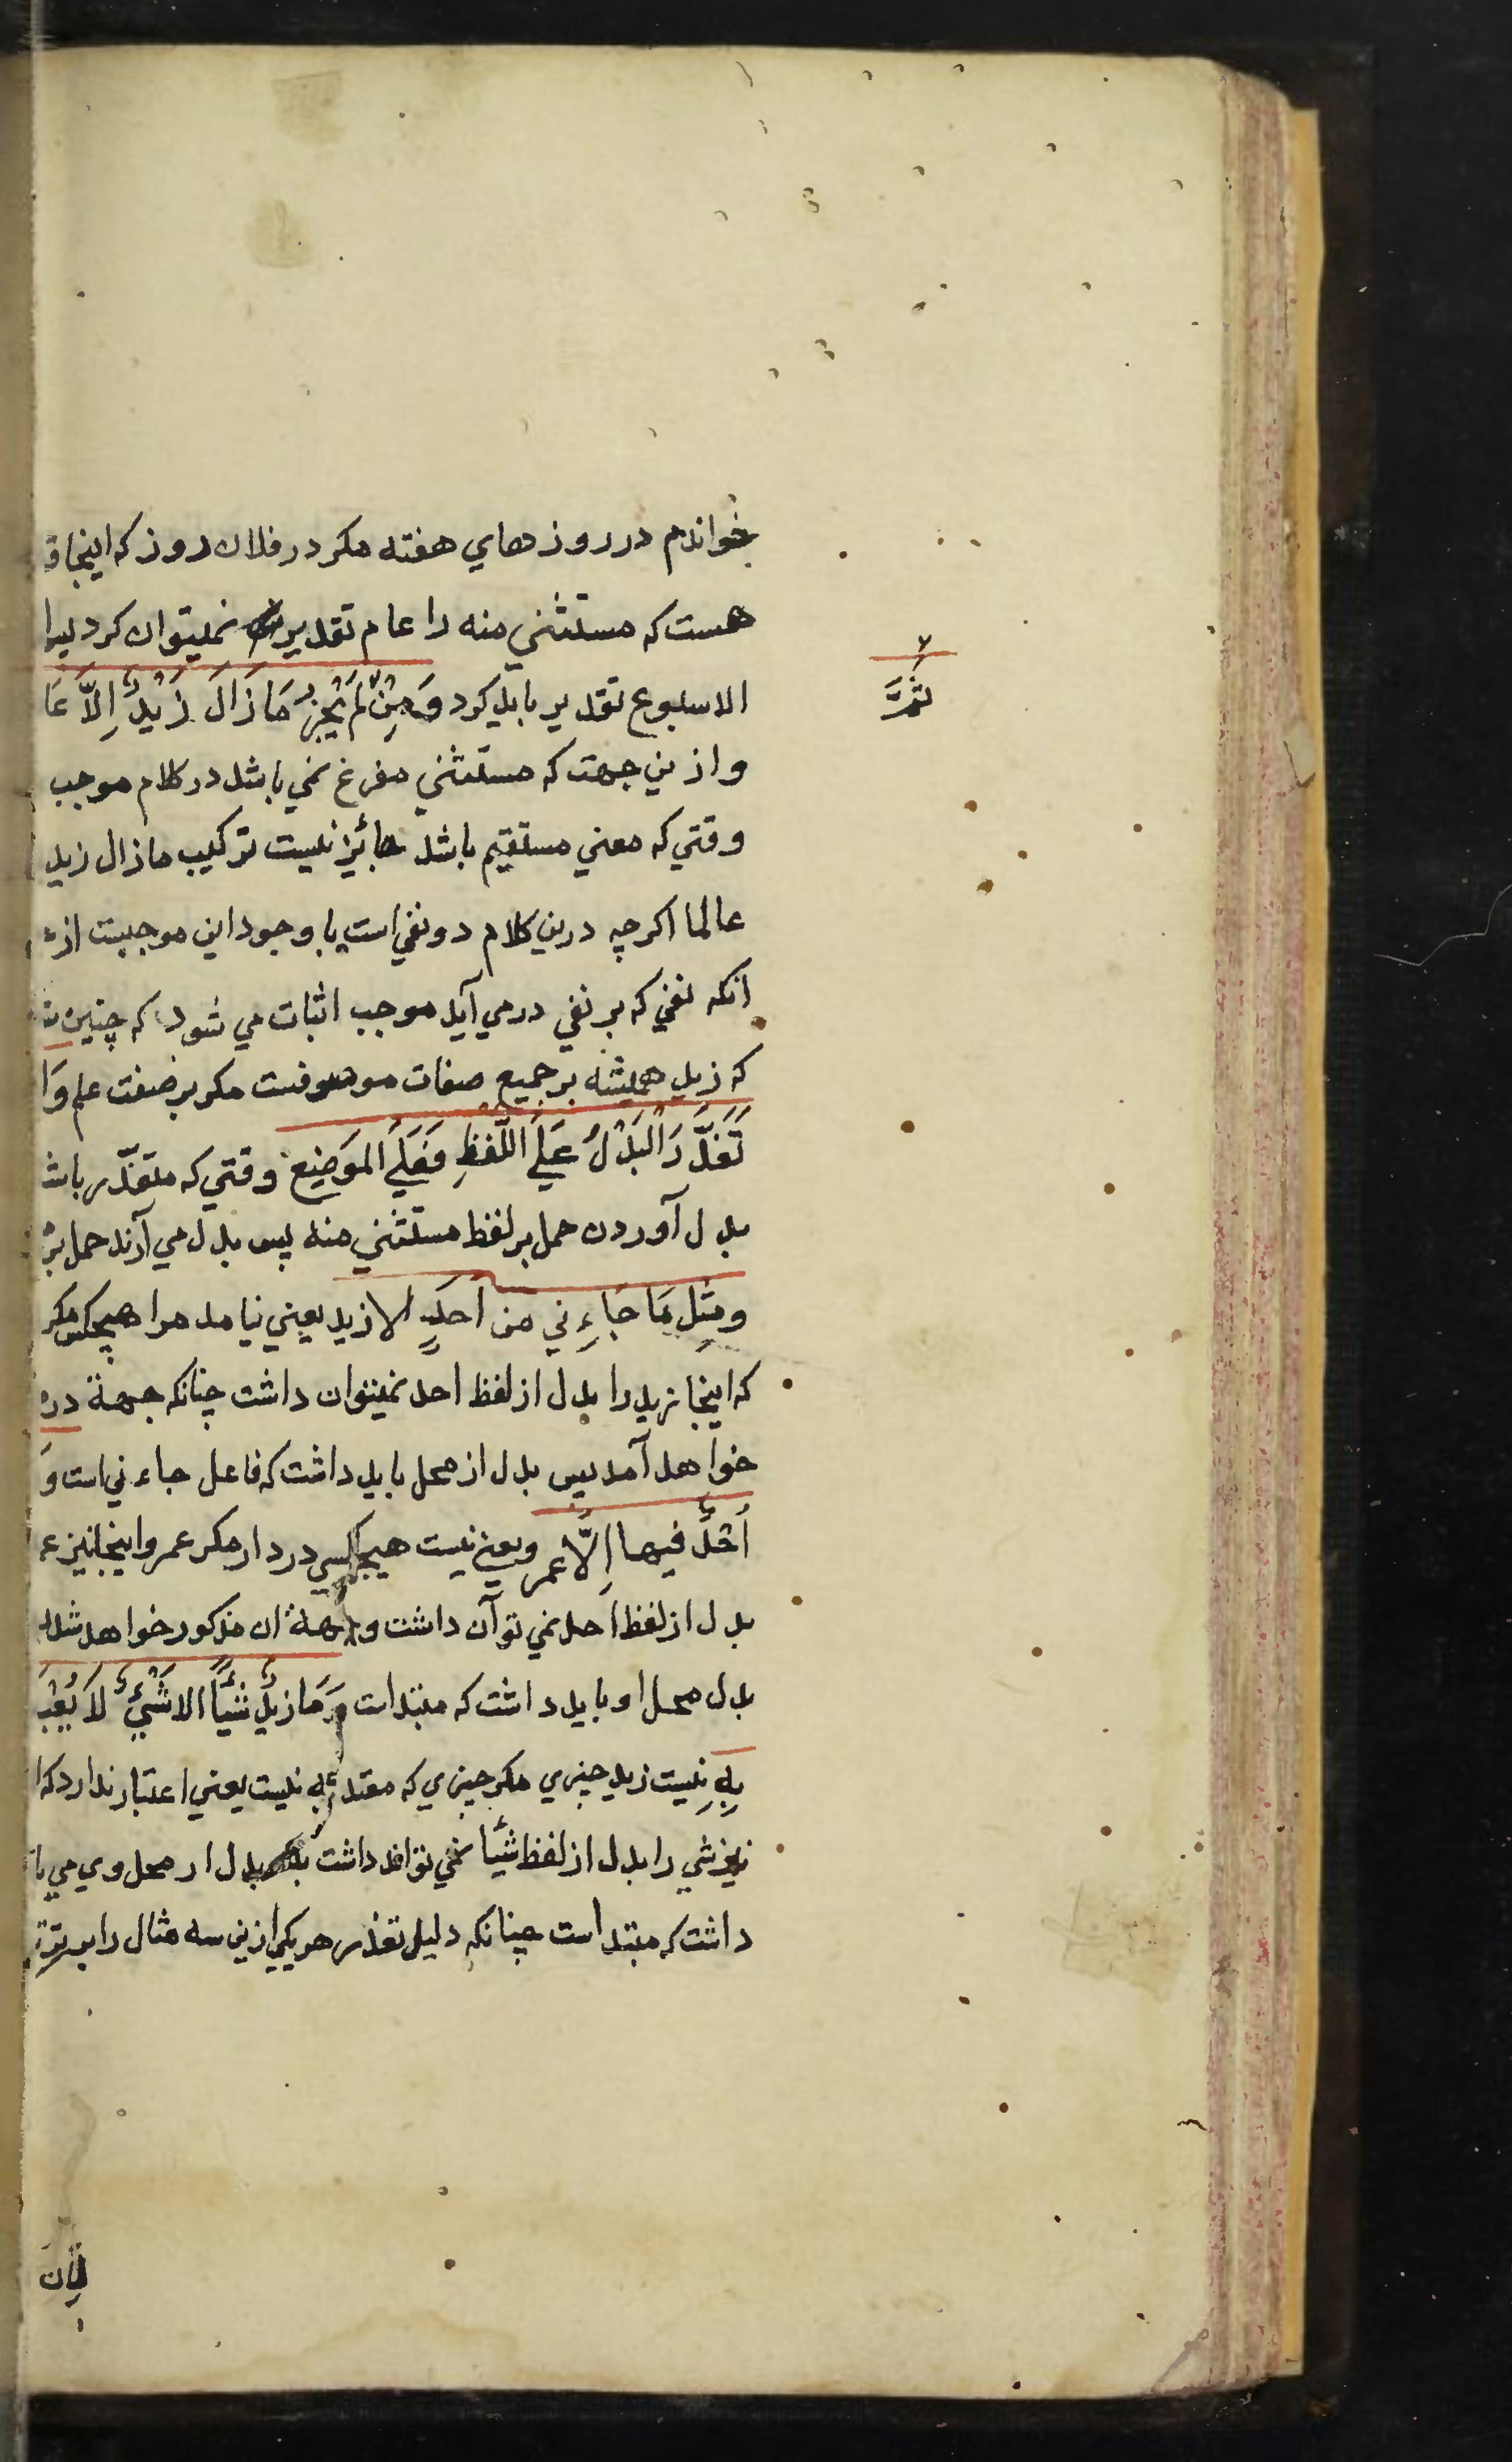 بخواندم در روز هاي هفته مكر در فلان روز كه اينجا ق
هست كه مستثني منه را عام تقدير نميتوان كرد ليرا
الاسبوع تقدير بايد كرد وَمِنْ ثَمَّ لَمْ يَجُزْ مَا زَالَ زَيْدٌ إِلاَّ عَا
ثَمَّ
و ازين جهت كه مستثني مفرغ نمي باشد در كلام موجب
وقتي كه معني مستقيم باشد جائز نيست تركيب مازال زيد
عالما اكرچه درين كلام دو نفي است با وجود اين موجبست از
انكه نفي كه بر نفي درمي آيد موجب اثبات مي شود كه چنين
كه زيد هميشه بر جميع صفات موصوفست مكر بر صفت علم وَا
تَعَذَّرَ الْبَدْلُ عَلَي اللَّفظِ فَعَلَي المَوَضِع وقتي كه متعذّر باش
بدل آوردن حمل بر لفظ مستثني منه پس بدل مي آرند حمل بر
ومثِل مَا جَاءِني من اَحَدٍ الا زيد يعني نيامد مرا هيچكس مكر
كه اينجا زيد را بدل از لفظ احد نميتوان داشت چنانكه جهة در
خواهد آمد پس بدل از محل بايد داشت كه فاعل جاءني است وَ
اَحَدٌ فيها اِلاَّ عمرو يعني نيست هيچكسي در دار مكر عمرو اينجا نيز ع
بدل از لفظ احد نمي توآن داشت و جهة ان مذكور خواهد شد
بدل محل او بايد داشت كه مبتداست وَمَا زيدٌ شيأً الا شَيْءٌ لاَ يُعْبَ
بِهِ نيست زيد چيزي مكر چيزي كه معتد به نيست يعني اعتبار ندارد كه ا
نيز شي را بدل از لفظ شيأ نمي تواند داشت بلكه بدل از محل وي مي با
داشت كه مبتداست چنانكه دليل تعذر هر يكي ازين سه مثال را بر ترت
لِأن